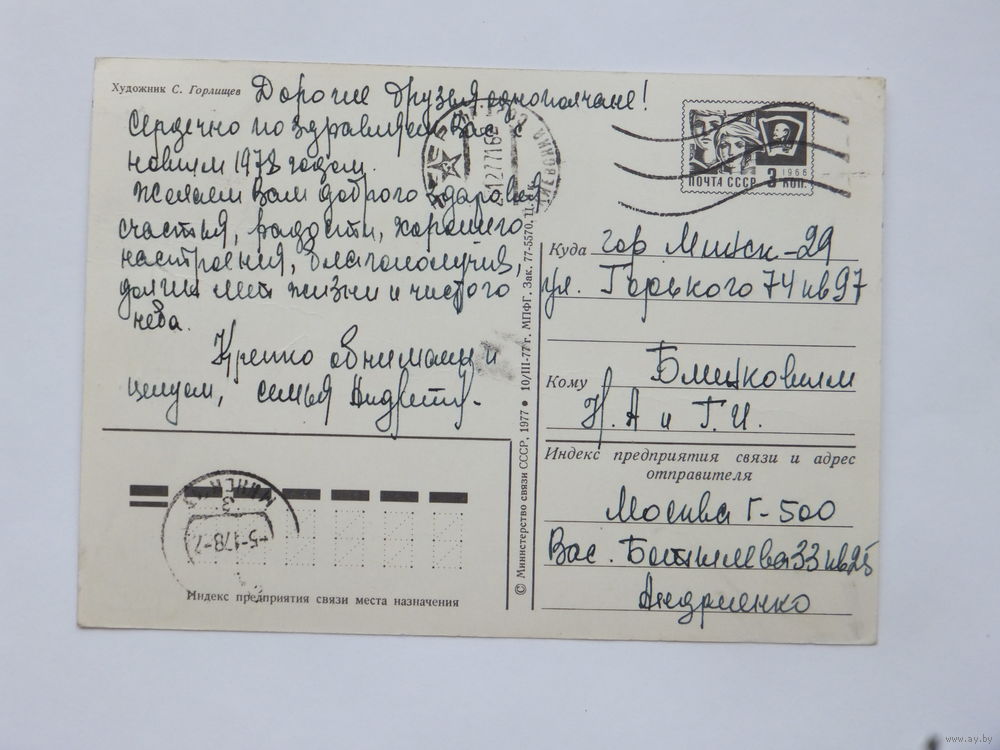 Художник С. Горлищев
Дорогие друзья однополчане!
Сердечно поздравляем Вас с
новым 1978 годом.
Желаем Вам доброго здоровья
счастья, радости, хорошего
настроения, благополучия,
долгих лет жизни и чистого
неба.
Крепко обнимаем и
целуем, семья
ПОЧТА СССР 3 КОП.
1966
Куда гор Минск-29
ул. Горького 74 кв 97
Кому
Н. А и Г. И.
Индекс предприятия связи и адрес
отправителя
Москва Г-500
Вас. 33 кв 25
Андриенко
© Министерство связи СССР, 1977 ● 10/III-77 г. МПФГ. Зак. 77-5570. Ц. 4 к.
МИНСК
Индекс предприятия связи места назначения
www.ay.by